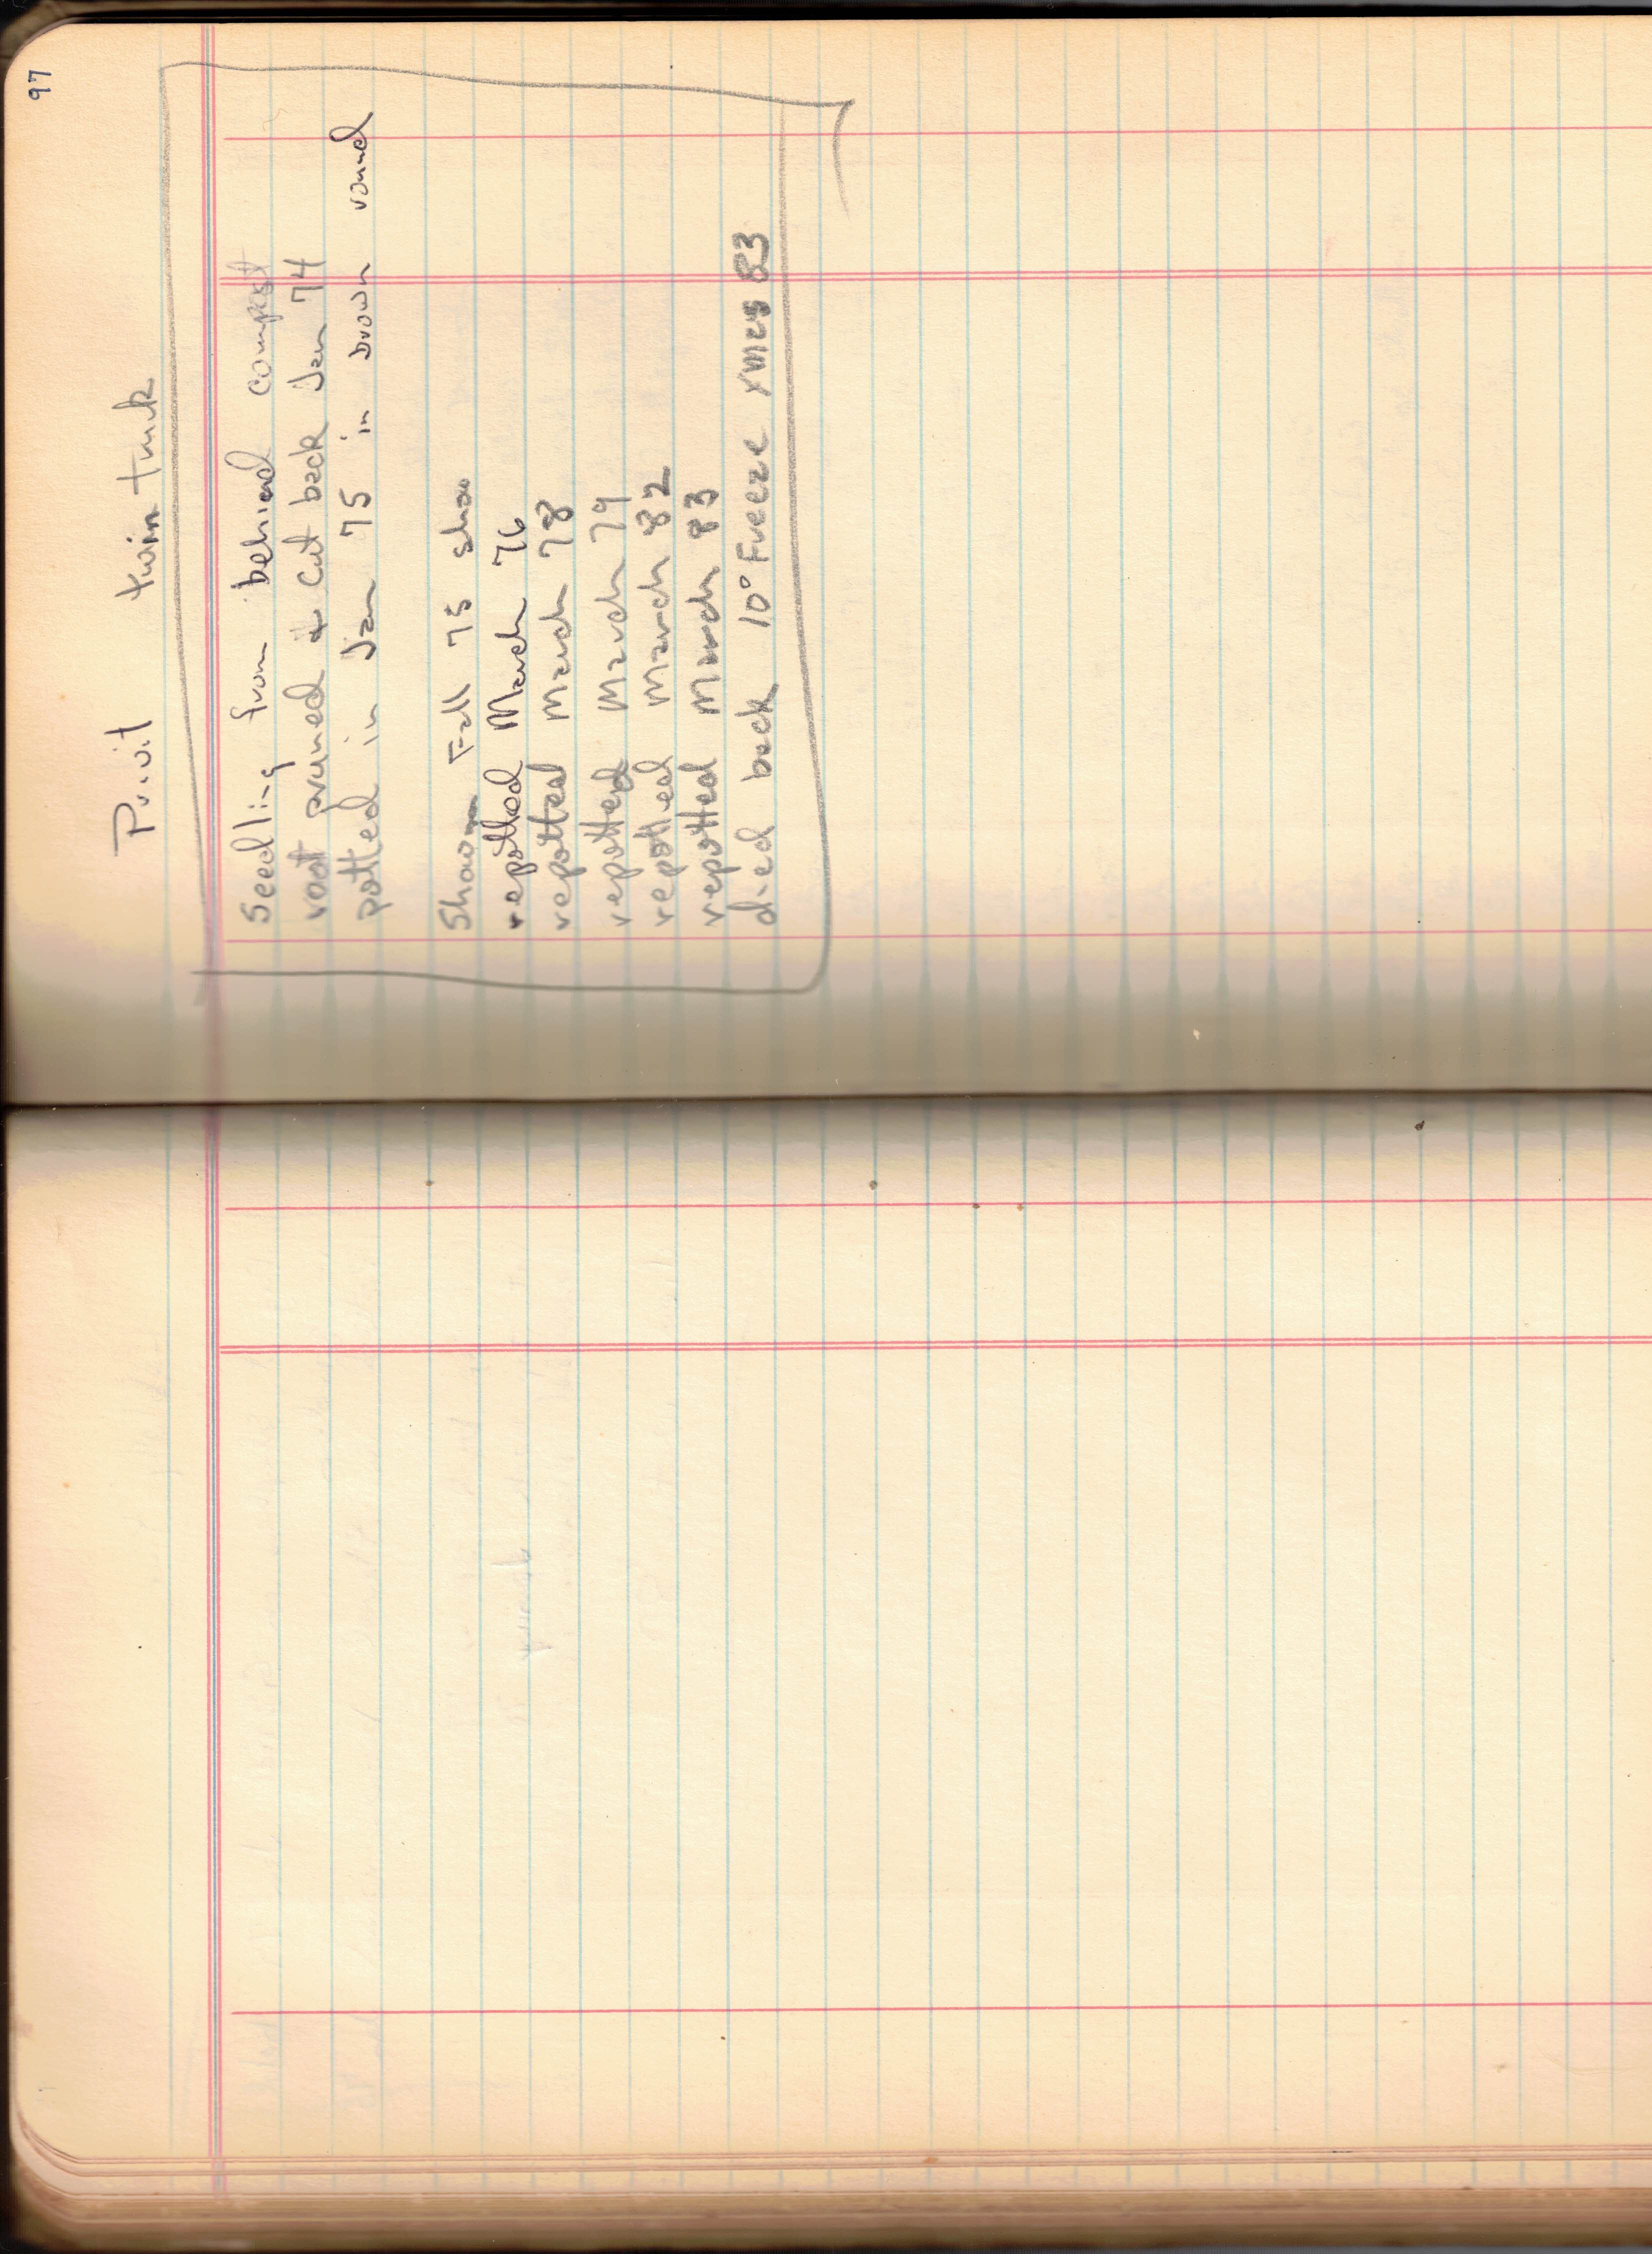 97
Privit twin trunk
Seedling from behind compost
root pruned & cut back Jan 74
potted in Jan 75 in brown round
Shown Fall 75 show
repotted March 76
repotted March 78
repotted March 79
repotted March 82
repotted March 83
died back 10° Freeze Xmas 83